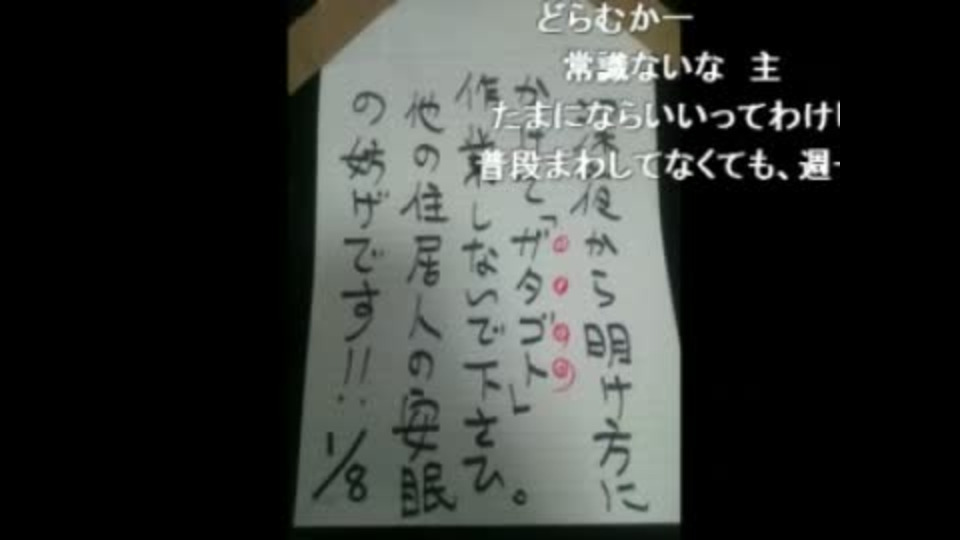 どらむかー
常識ないな 主
たまにならいいってわけ
普段まわしてなくても、週
深夜から明け方に
かけて「ガタゴト」
作業しないで下さひ。
他の住居人の安眠
の妨げです!!
1/8